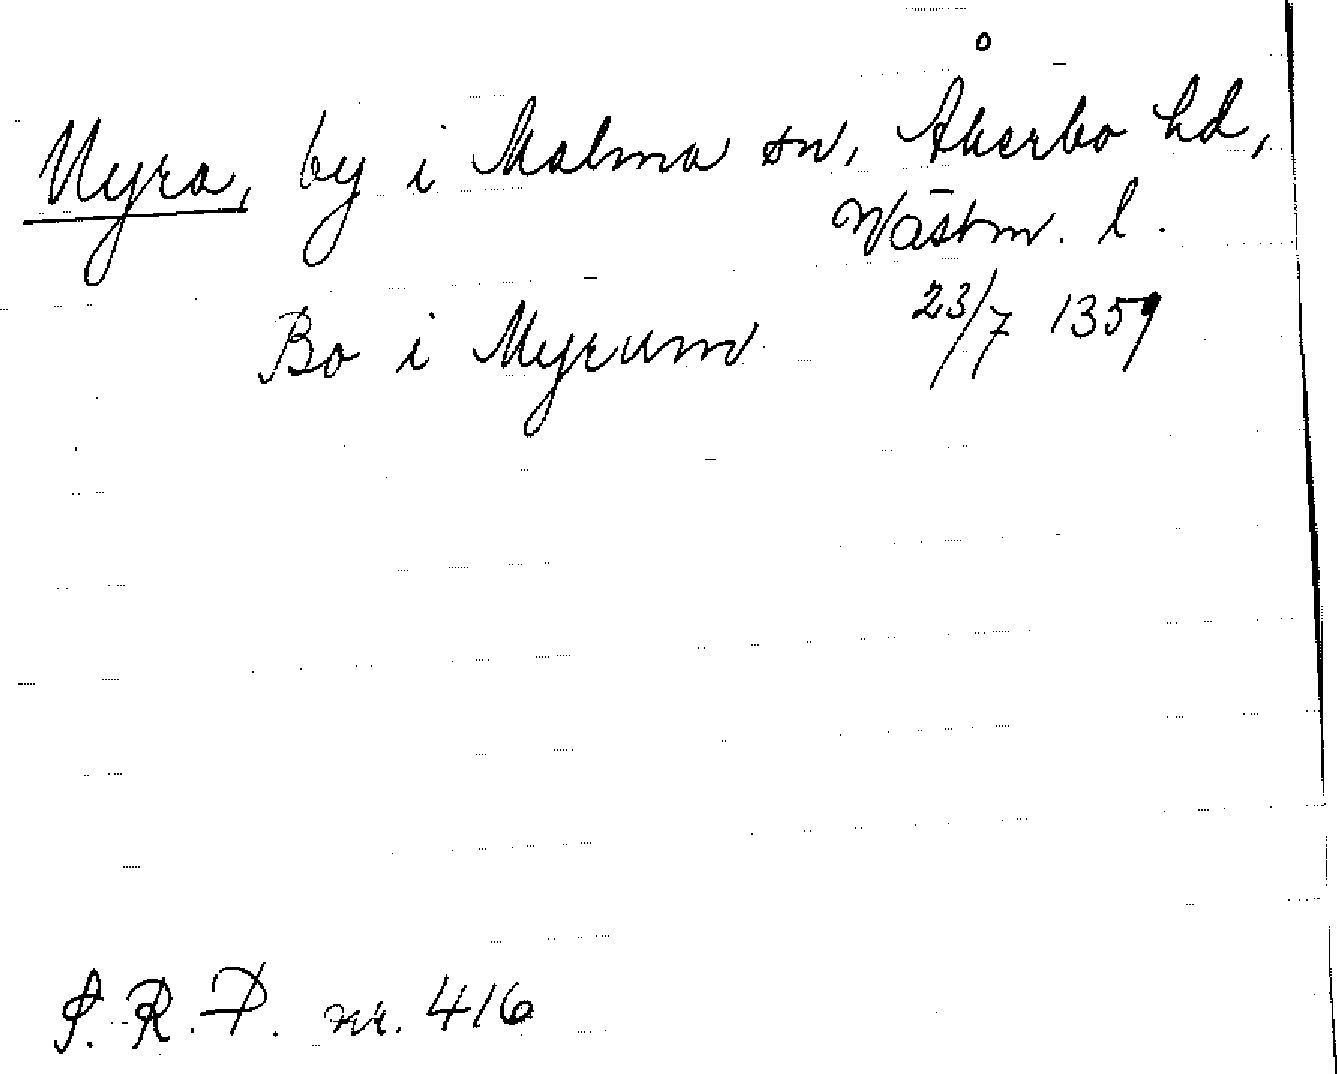 Myra, by i Malma sn, Åkerbo hd,
Västm. l.
Bo i Myrum 23/7 1359
S.R.P. nr. 416